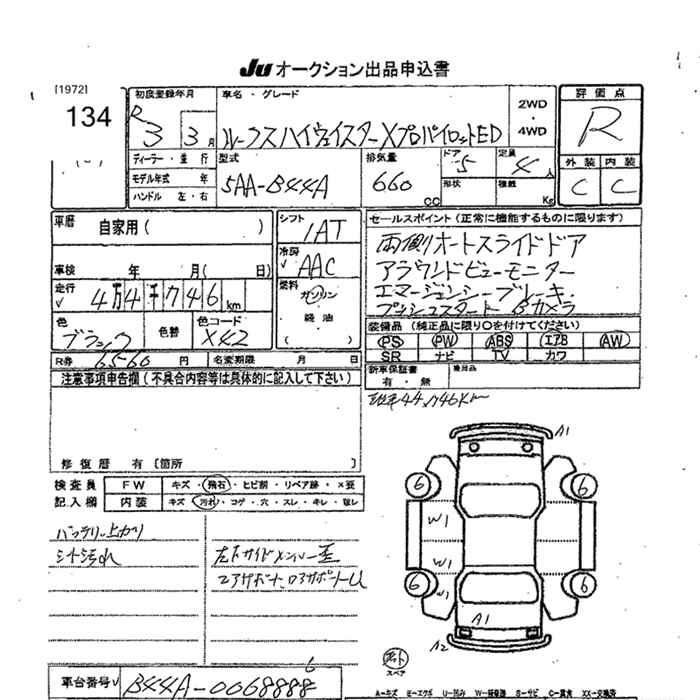 JU オークション出品申込書
[1972]
134
初度登録年月
R 3 3 月
車名・グレード
ルークスハイウェイスターXプロパイロットED
2WD
・
4WD
評価点
R
ディーラー・並行
モデル年式 年
ハンドル 左・右
型式
5AA-B44A
排気量
660 CC
ドア
5
形状
定員
4 人
積載
Kg
外装 内装
C C
車歴
自家用( )
車検 年 月( 日)
走行
√ 4万4千746 km
色
ブラック
色替
色コード
X42
R券 6560 円
名変期限 月 日
シフト
IAT
冷房
√ AAC
燃料
ガソリン
・
軽油
( )
セールスポイント(正常に機能するものに限ります)
両側オートスライドドア
アラウンドビューモニター
エマージェンシーブレーキ
プッシュスタート Bカメラ
装備品(純正品に限り○を付けてください)
PS PW ABS エアB AW
SR ナビ TV カワ
新車保証書
有・無
後日品
現車44,746Km
注意事項申告欄(不具合内容等は具体的に記入して下さい)
修復歴 有(箇所
検査員
記入欄
FW キズ・飛石・ヒビ割・リペア跡・X要
内装 キズ・汚れ・コゲ・穴・スレ・キレ・破レ
バッテリー上がり
シート汚れ
左下サイドメンバー歪
コアサポート、ロアサポートU
A1
6 6
W1
W1
W1
6 6
A1
A2
スペア
車台番号√ B44A-0068888
6
A-キズ E-エクボ U-凹み W-補修跡 S-サビ C-腐食 XX-交換済